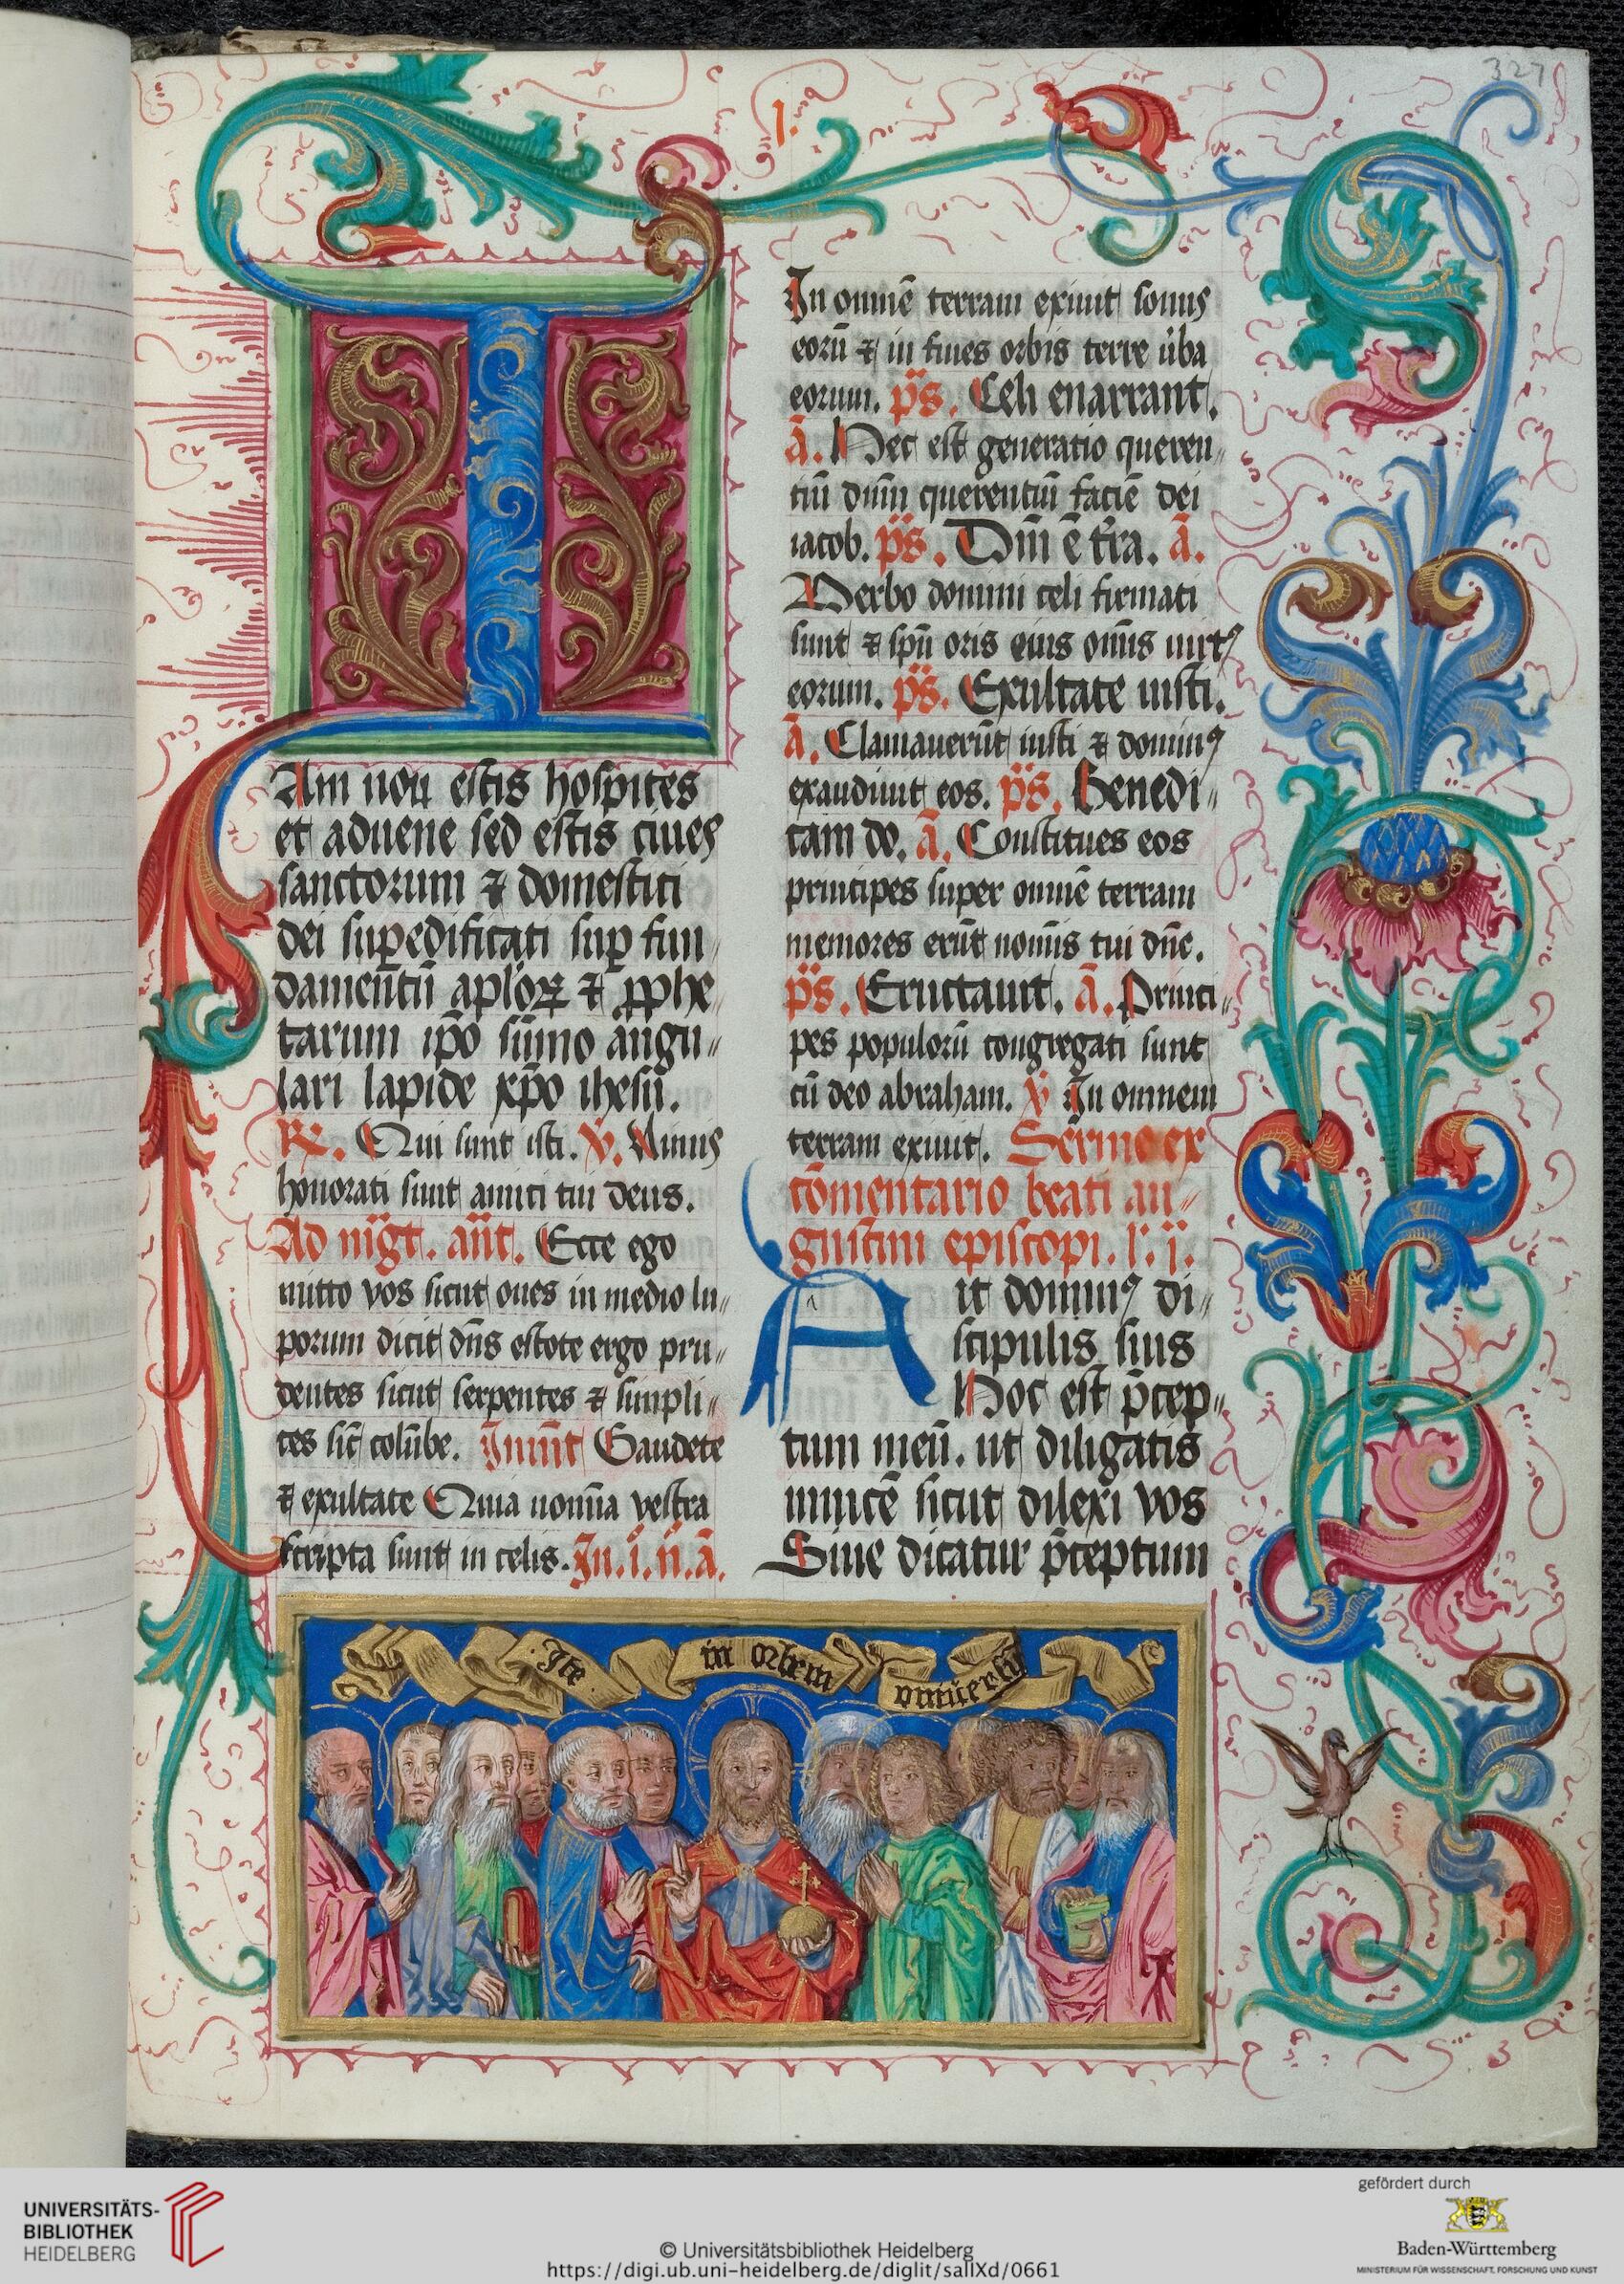 327
1.
I
Am non estis hospites
et aduene sed estis ciues
sanctorum ⁊ domestici
dei sup̱edificati sup̱ fun„
damentū apl̄oꝝ ⁊ ꝓphe„
tarum ip̄o sūmo angu„
lari lapide xp̄o ihesu.
R̸. Qui sunt isti. v̸. Nimis
honorati sunt amici tui deus.
Ad mg̅t. an̄t. Ecce ego
mitto vos sicut oues in medio lu„
porum dicit dn̄s estote ergo pru„
dentes sicut serpentes ⁊ simpli„
ces sic̄ colūbe. Inuit̄ Gaudete
⁊ exultate Quia nomīa vestra
scripta sunt in celis. In .i. n̄. ā.
In omnē terram exiuit sonus
eorū ⁊ in fines orbis terre ūba
eorum. p̄s. Celi enarrant.
ā. Hec est generatio queren„
tiū dnm̄ querentiū faciē dei
iacob. p̄s. Dn̄i ē t̄ra. ā.
Verbo domini celi firmati
sunt ⁊ spū oris eius om̄is uirtꝰ
eorum. p̄s. Exultate iusti.
ā. Clamauerūt iusti ⁊ dominꝰ
exaudiuit eos. p̄s. Benedi„
cam do. ā. Constitues eos
principes super omnē terram
memores erūt nomīs tui dn̄e.
p̄s. Eructauit. ā. Princi„
pes populorū congregati sunt
cū deo abraham. v̸ In omnem
terram exiuit. Sermo ex
cōmentario beati au„
gustini episcopi. l̄. j̄.
Ait dominꝰ di„
scipulis suis
Hoc est p̄cep„
tum meū. ut diligatis
inuicē sicut dilexi vos
Siue dicatur p̄ceptum
Ite in orbem vniuersū
UNIVERSITÄTS-
BIBLIOTHEK
HEIDELBERG
© Universitätsbibliothek Heidelberg
https://digi.ub.uni-heidelberg.de/diglit/salIXd/0661
gefördert durch
Baden-Württemberg
MINISTERIUM FÜR WISSENSCHAFT, FORSCHUNG UND KUNST